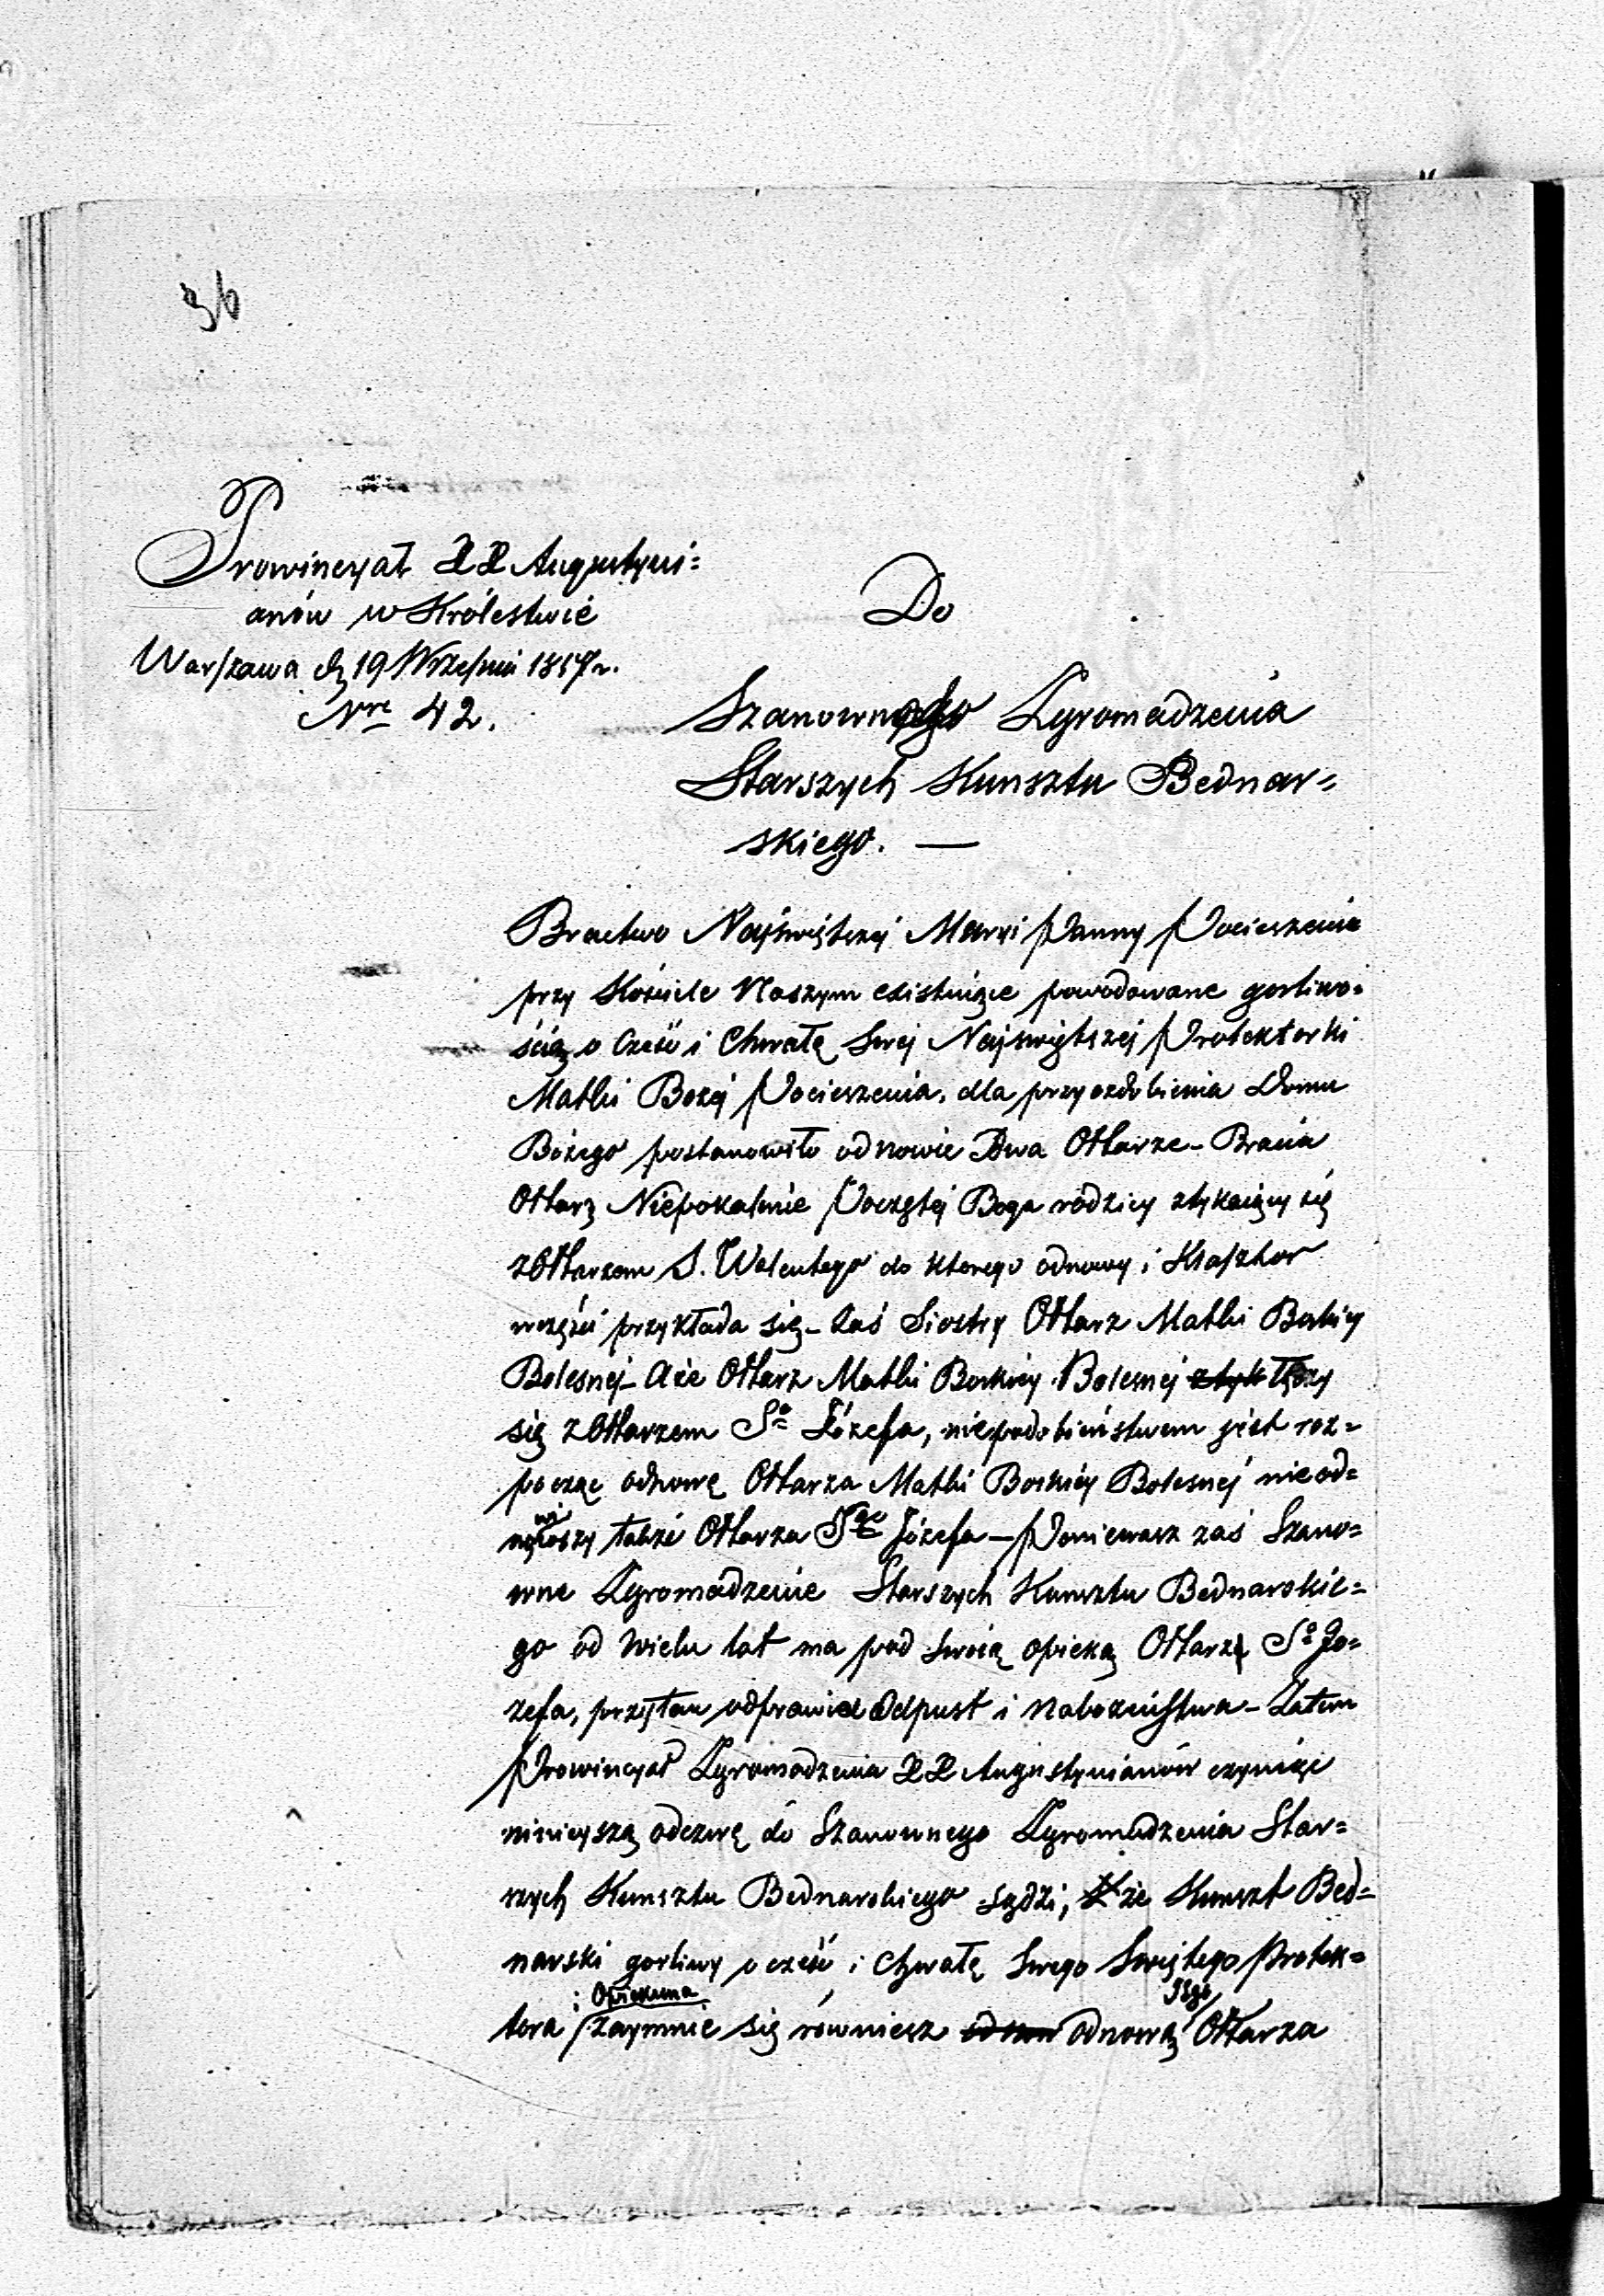 36
Prowincyał XX Augustyni=
anów w Królestwie
Warszawa d. 19 Września 1857 r.
Nro 42.
Do
Szanownego Zgromadzenia
Starszych Kunsztu Bednar=
skiego. —
Bractwo Najświętszej Maryi Panny Pocieszenia
przy Kościele Naszym existuiące powodowane gorliwo=
ścią o Cześć i Chwałę Swej Najświętszej Protektorki
Matki Bożej Pocieszenia, dla przyozdobienia Domu
Bożego postanowiło odnowić Dwa Ołtarze – Bracia
Ołtarz Niepokalanie Poczętej Boga rodzicy stykaiący się
z Ołtarzem S. Walentego do którego odnowy i Klasztor
w części przykłada się – Zaś Siostry Ołtarz Matki Boskiey
Bolesnej – A że Ołtarz Matki Boskiey Bolesnej styk łączy
się z Ołtarzem Sº Józefa, niepodobieństwem jest roz=
począć odnowę Ołtarza Matki Boskiey Bolesnej nie od=
nowiwszy także Ołtarza Sgo Józefa – Ponieważ zaś Szano=
wne Zgromadzenie Starszych Kunsztu Bednarskie=
go od wielu lat ma pod swoią opieką Ołtarz Sº Jo=
zefa, przytem odprawia Odpust i Nabożeństwa – Zatem
Prowincyał Zgromadzenia XX Augustynianów czyniąc
ninieyszą odezwę do Szanownego Zgromadzenia Star=
szych Kunsztu Bednarskiego sądzi, że Kunszt Bed=
narski gorliwy o cześć i Chwałę Swego Świętego Protek=
: Opiekuna Jego
tora zaymnie się również odnową Ołtarza